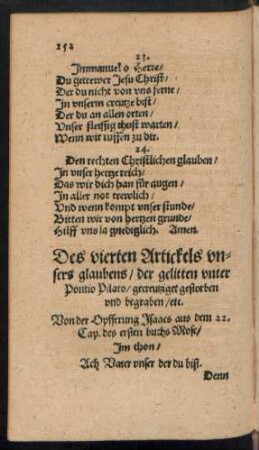 252
23.
Immanuel o Herre/
Du getrewer Jesu Christ/
Der du nicht von vns ferne/
In vnserm creutze bist/
Der du an allen orten/
Vnser fleissig thust warten/
Wenn wir ruffen zu dir.
24.
Den rechten Christlichen glauben/
In vnser hertze reich/
Das wir dich han für augen/
In aller not trewlich/
Vnd wenn kompt vnser stunde/
Bitten wir von hertzen grunde/
Hilff vns ja gnediglich. Amen.
Des vierten Artickels vn-
sers glaubens/ der gelitten vnter
Pontio Pilato/ gecreutziget gestorben
vnd begraben/ etc.
Von der Opfferung Isaacs aus dem 22.
Cap. des ersten buchs Mose/
Im thon/
Ach Vater vnser der du bist.
Denn